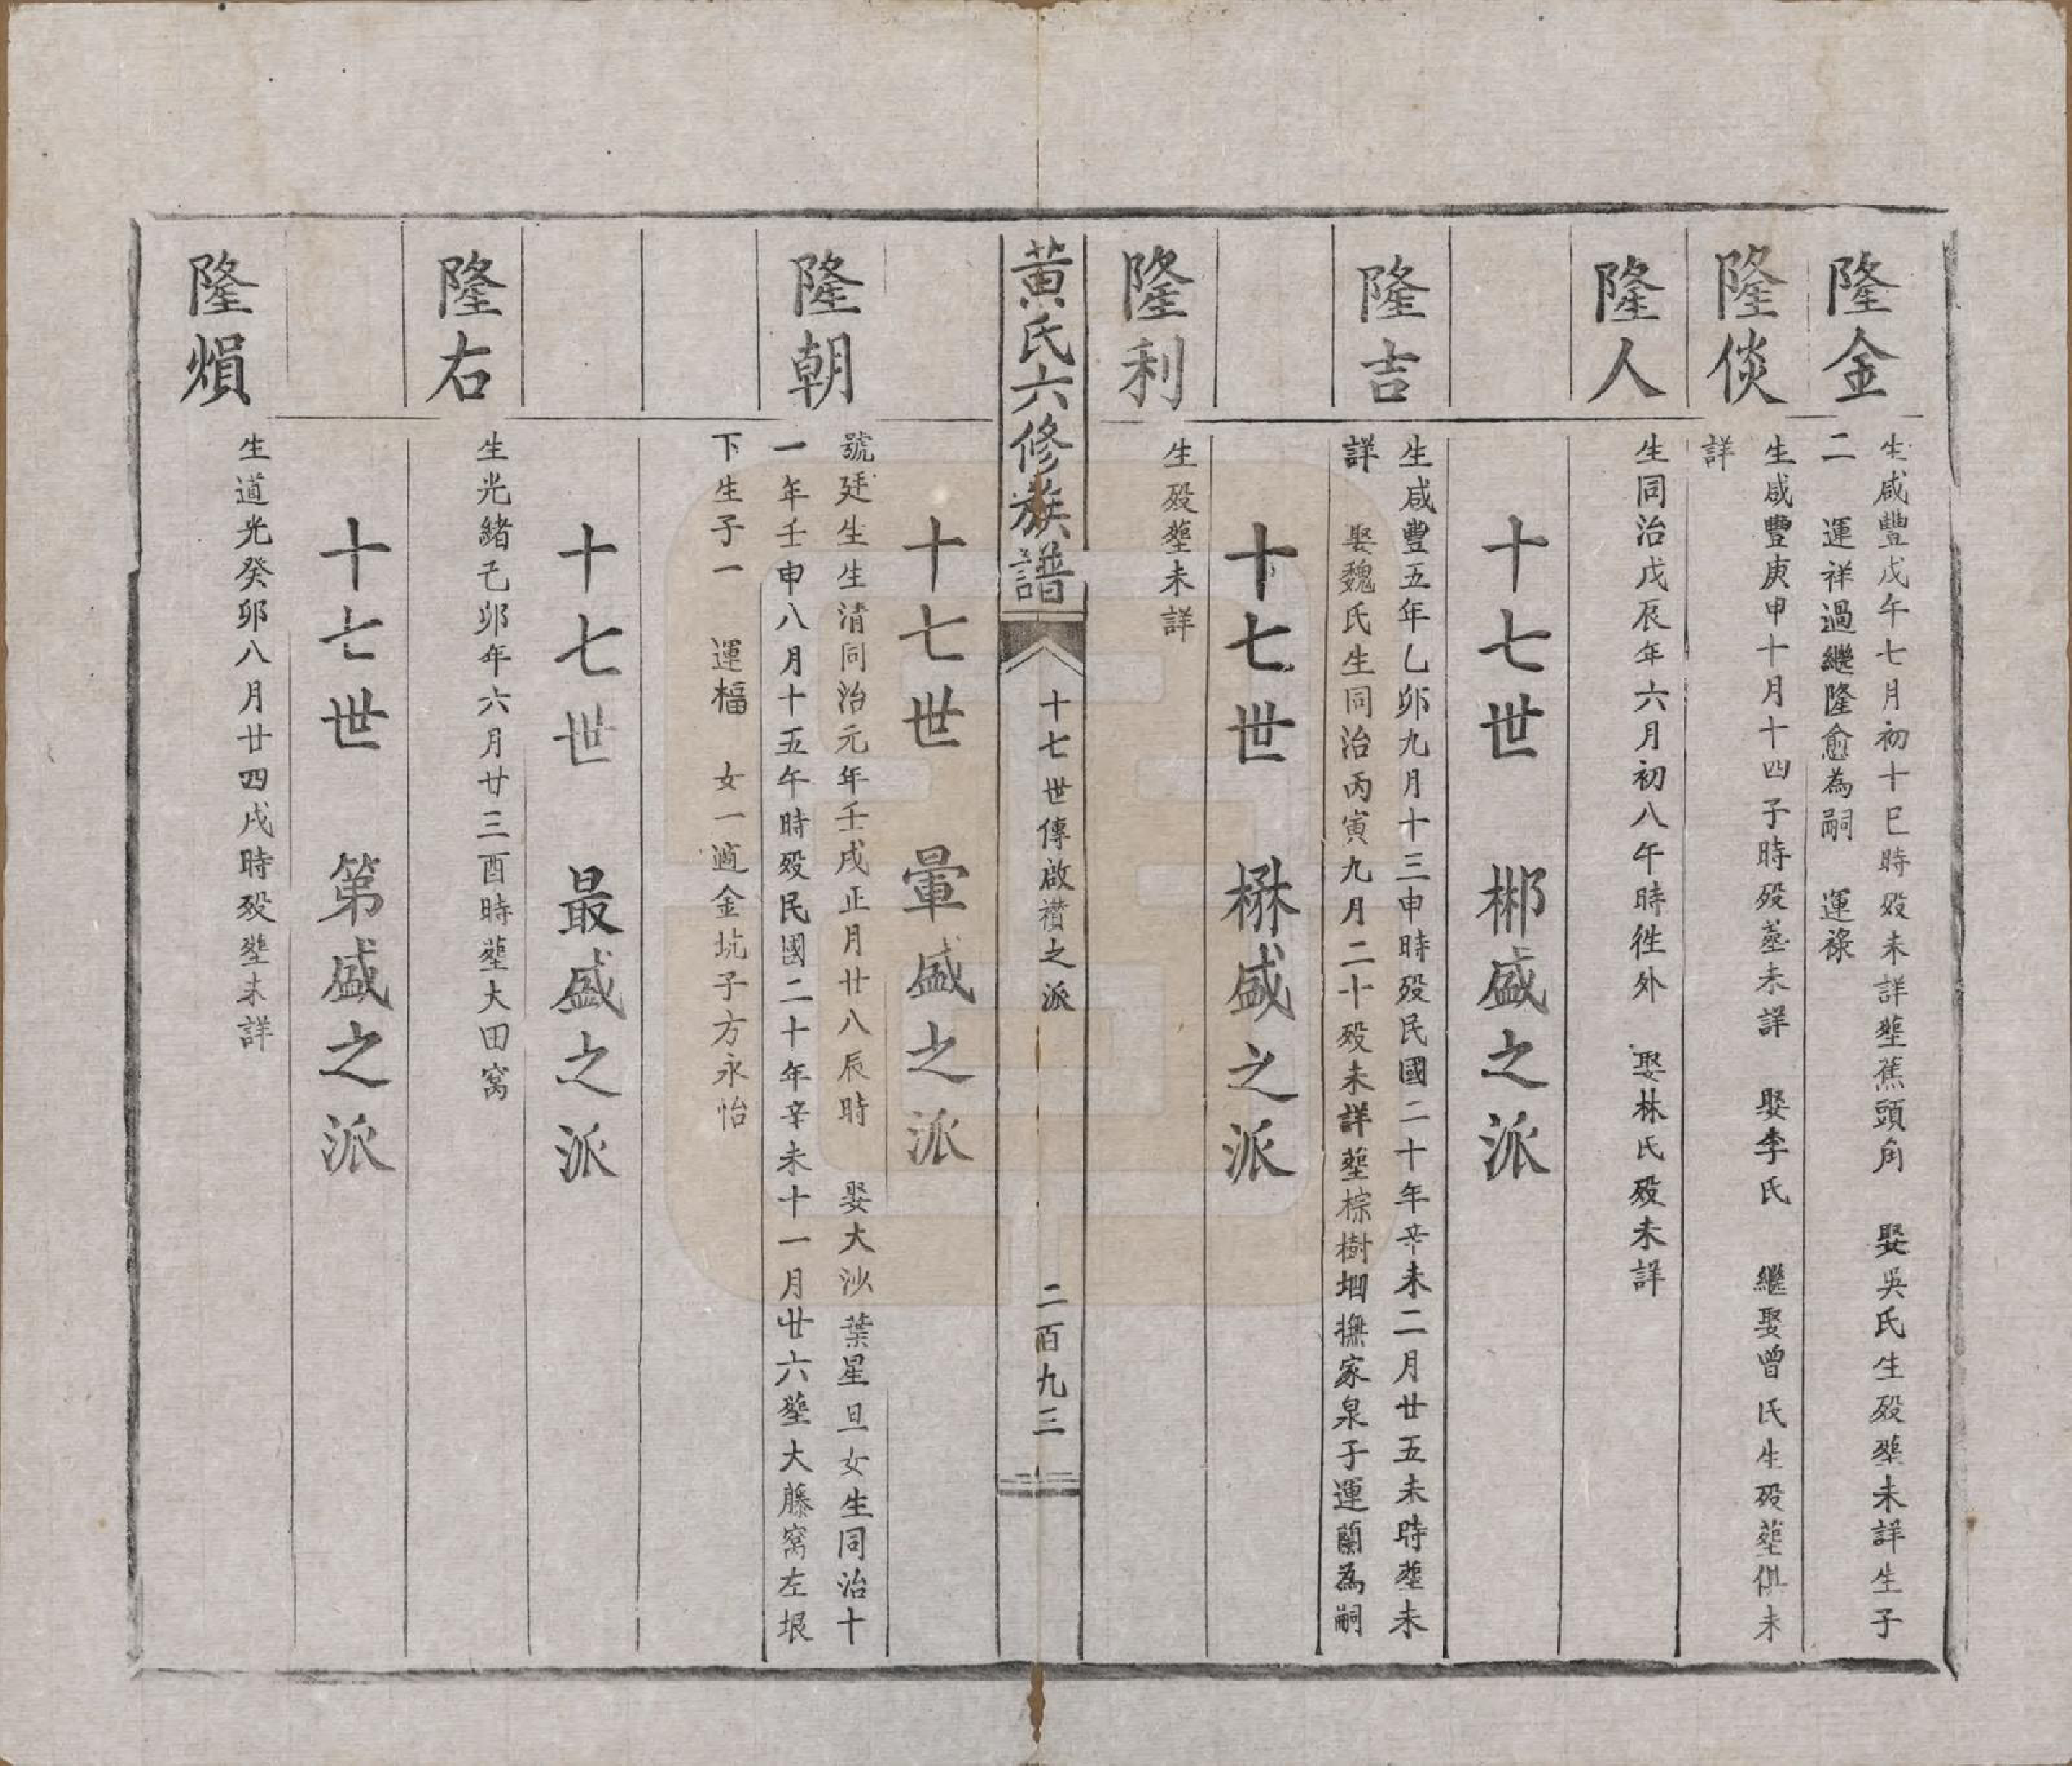 隆金
生咸豐戊午七月初十巳時歿未詳塟蕉頭角 娶吳氏生歿塟未詳生子
二 運祥過繼隆愈為嗣 運祿
隆倓
生咸豐庚申十月十四子時歿塟未詳 娶李氏 繼娶曾氏生歿塟俱未
詳
隆人
生同治戊辰年六月初八午時徃外 娶林氏歿未詳
十七世 郴盛之派
隆吉
生咸豐五年乙卯九月十三申時歿民國二十年辛未二月廿五未時塟未
詳 娶魏氏生同治丙寅九月二十歿未詳塟棕樹垇撫家泉子運蘭為嗣
十七世 楙盛之派
隆利
生歿塟未詳
黄氏六修族譜
十七世傳啟襸之派
二百九三
十七世 暈盛之派
隆朝
號廷生生清同治元年壬戌正月廿八辰時 娶大沙葉星旦女生同治十
一年壬申八月十五午時歿民國二十年辛未十一月廿六塟大藤窩左垠
下生子一 運楅 女一適金坑子方永怡
十七世 最盛之派
隆右
生光緒己卯年六月廿三酉時塟大田窩
十七世 第盛之派
隆熉
生道光癸卯八月廿四戌時歿塟未詳